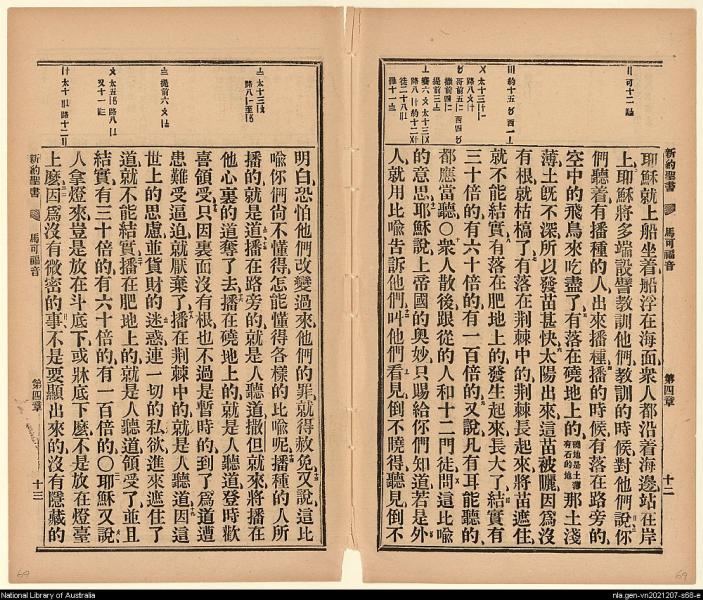 新約聖書
馬可福音
第四章
十二
耶穌就上船坐着船浮在海面衆人都沿着海邊站在岸
上耶穌將多端設譬教訓他們教訓的時候對他們說你
們聽着有播種的人出來播種播的時候有落在路旁的
空中的飛鳥來吃盡了有落在磽地上的磽地是土薄有石的地那土淺
薄土旣不深所以發苗甚快太陽出來這苗被曬因爲沒
有根就枯槁了有落在荆棘中的荆棘長起來將苗遮住
就不能結實有落在肥地上的發生起來長大了結實有
三十倍的有六十倍的有一百倍的又說凡有耳能聽的
都應當聽○衆人散後跟從的人和十二門徒問這比喩
的意思耶穌說上帝國的奧妙只賜給你們知道若是外
人就用比喩吿訴他們叫他們看見倒不曉得聽見倒不
明白恐怕他們改變過來他們的罪就得赦免又說這比
喩你們尙不懂得怎能懂得各樣的比喩呢播種的人所
播的就是道播在路旁的就是人聽道撒但就來將播在
他心裏的道奪了去播在磽地上的就是人聽道登時歡
喜領受只因裏面沒有根也不過是暫時的到了爲道遭
患難受逼迫就厭棄了播在荆棘中的就是人聽道因這
世上的思慮並貨財的迷惑連一切的私欲進來遮住了
道就不能結實播在肥地上的就是人聽道領受了並且
結實有三十倍的有六十倍的有一百倍的○耶穌又說
人拿燈來豈是放在斗底下或牀底下麽不是放在燈臺
上麽因爲沒有微密的事不是要顯出來的沒有隱藏的
新約聖書
馬可福音
第四章
十三
69
69
National Library of Australia
nla.gen-vn2021207-s68-e